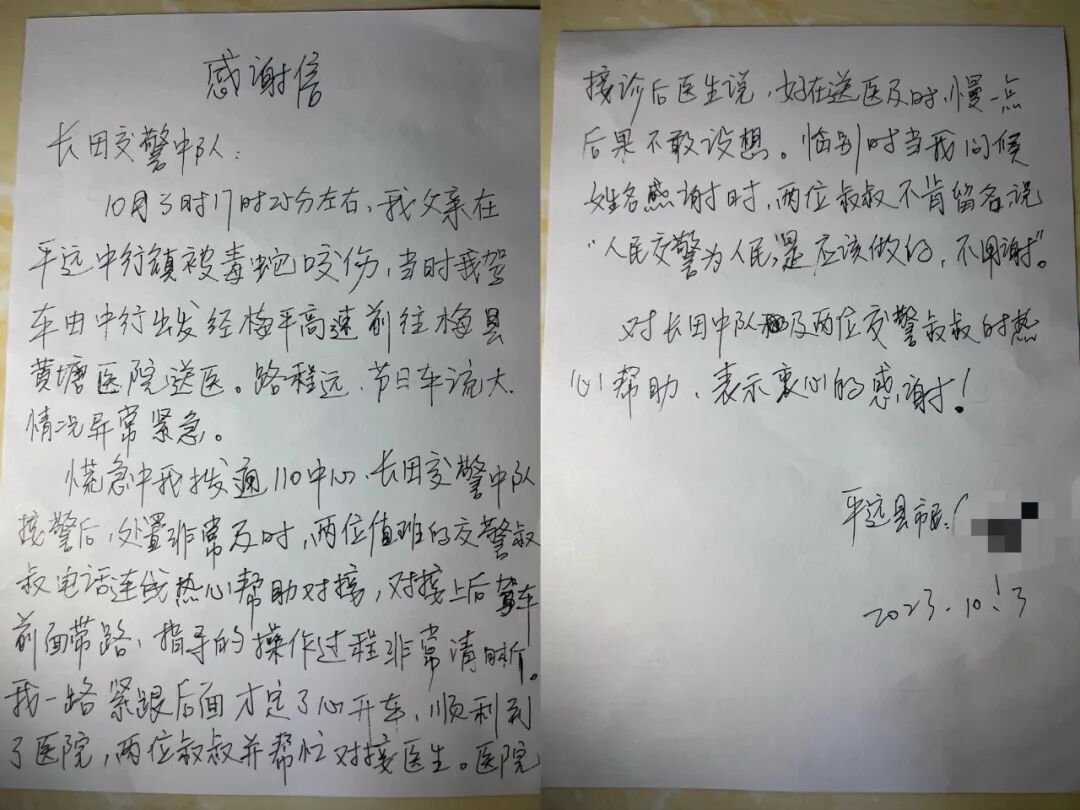 感谢信
长田交警中队：
10月3时17时25分左右，我父亲在
平远中行镇被毒蛇咬伤，当时我驾
车由中行出发经梅平高速前往梅县
黄塘医院送医。路程远、节日车流大、
情况异常紧急。
慌急中我拨通110中心、长田交警中队
接警后，处置非常及时，两位值班的交警叔
叔电话连线热心帮助对接，对接上后驾车
前面带路、指导的操作过程非常清晰。
我一路紧跟后面才定了心开车，顺利到
了医院，两位叔叔并帮忙对接医生。医院
接诊后医生说，好在送医及时，慢一点
后果不敢设想。临别时当我问候
姓名感谢时，两位叔叔不肯留名说
“人民交警为人民，是应该做的，不用谢”。
对长田中队及两位交警叔叔的热
心帮助、表示衷心的感谢！
平远县市民：
2023.10.3